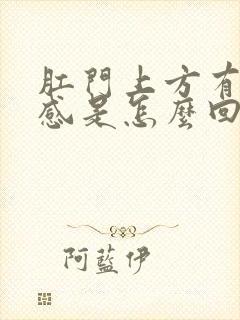 肛門上方有
感是怎麼回
阿藍伊